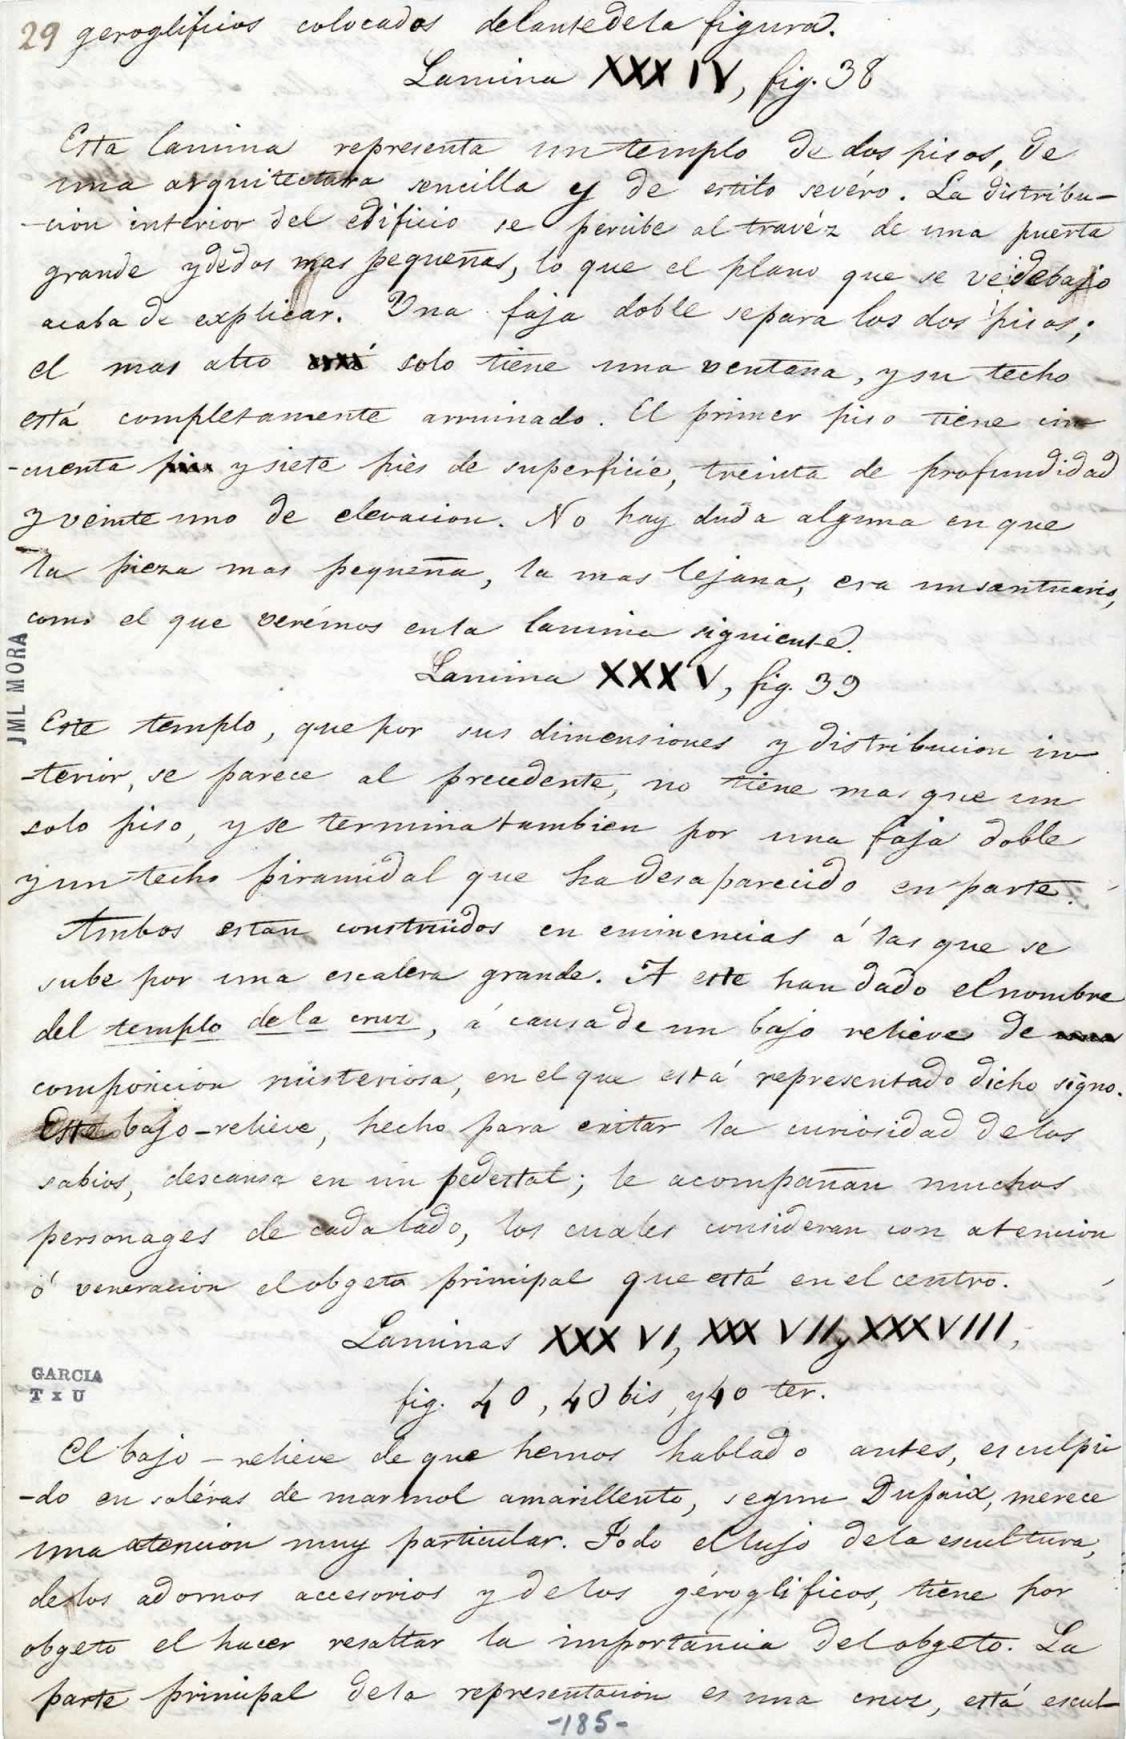 29 geroglificos colocados delante de la figura.
Lamina XXXIV, fig. 38
Esta lamina representa un templo de dos pisos, de
una arquitectura sencilla y de estilo sevéro. La distribu-
-cion interior del edificio se percibe al travéz de una puerta
grande y de dos mas pequeñas, lo que el plano que se vé debajo
acaba de explicar. Una faja doble separa los dos pisos;
el mas alto solo tiene una ventana, y su techo
está completamente arruinado. El primer piso tiene cin
-cuenta y siete piés de superficie, treinta de profundidad
y veinte uno de elevacion. No hay duda alguna en que
la pieza mas pequeña, la mas lejana, era un santuario,
como el que verémos en la lamina siguiente.
JML MORA
Lamina XXXV, fig. 39
Este templo, que por sus dimensiones y distribucion in
-terior, se parece al precedente, no tiene mas que un
solo piso, y se termina tambien por una faja doble
y un techo piramidal que ha desaparecido en parte.
Ambos estan construidos en eminencias á las que se
sube por una escalera grande. A este han dado el nombre
del templo de la cruz, á causa de un bajo relieve de
composicion misteriosa, en el que está representado dicho signo.
Este bajo-relieve, hecho para exitar la curiosidad de los
sabios, descansa en un pedestal; le acompañan muchos
personages de cada lado, los cuales consideran con atencion
ó veneracion el obgeto principal que está en el centro.
Laminas XXXVI, XXXVII y XXXVIII,
GARCIA
T x U
fig. 40, 40 bis, y 40 ter.
El bajo-relieve de que hemos hablado antes, esculpi
-do en soléras de marmol amarillento, segun Dupaix, merece
una atencion muy particular. Todo el lujo de la escultura,
de los adornos accesorios y de los géroglificos, tiene por
obgeto el hacer resaltar la importancia del obgeto. La
parte principal de la representacion es una cruz, está escul-
-185-